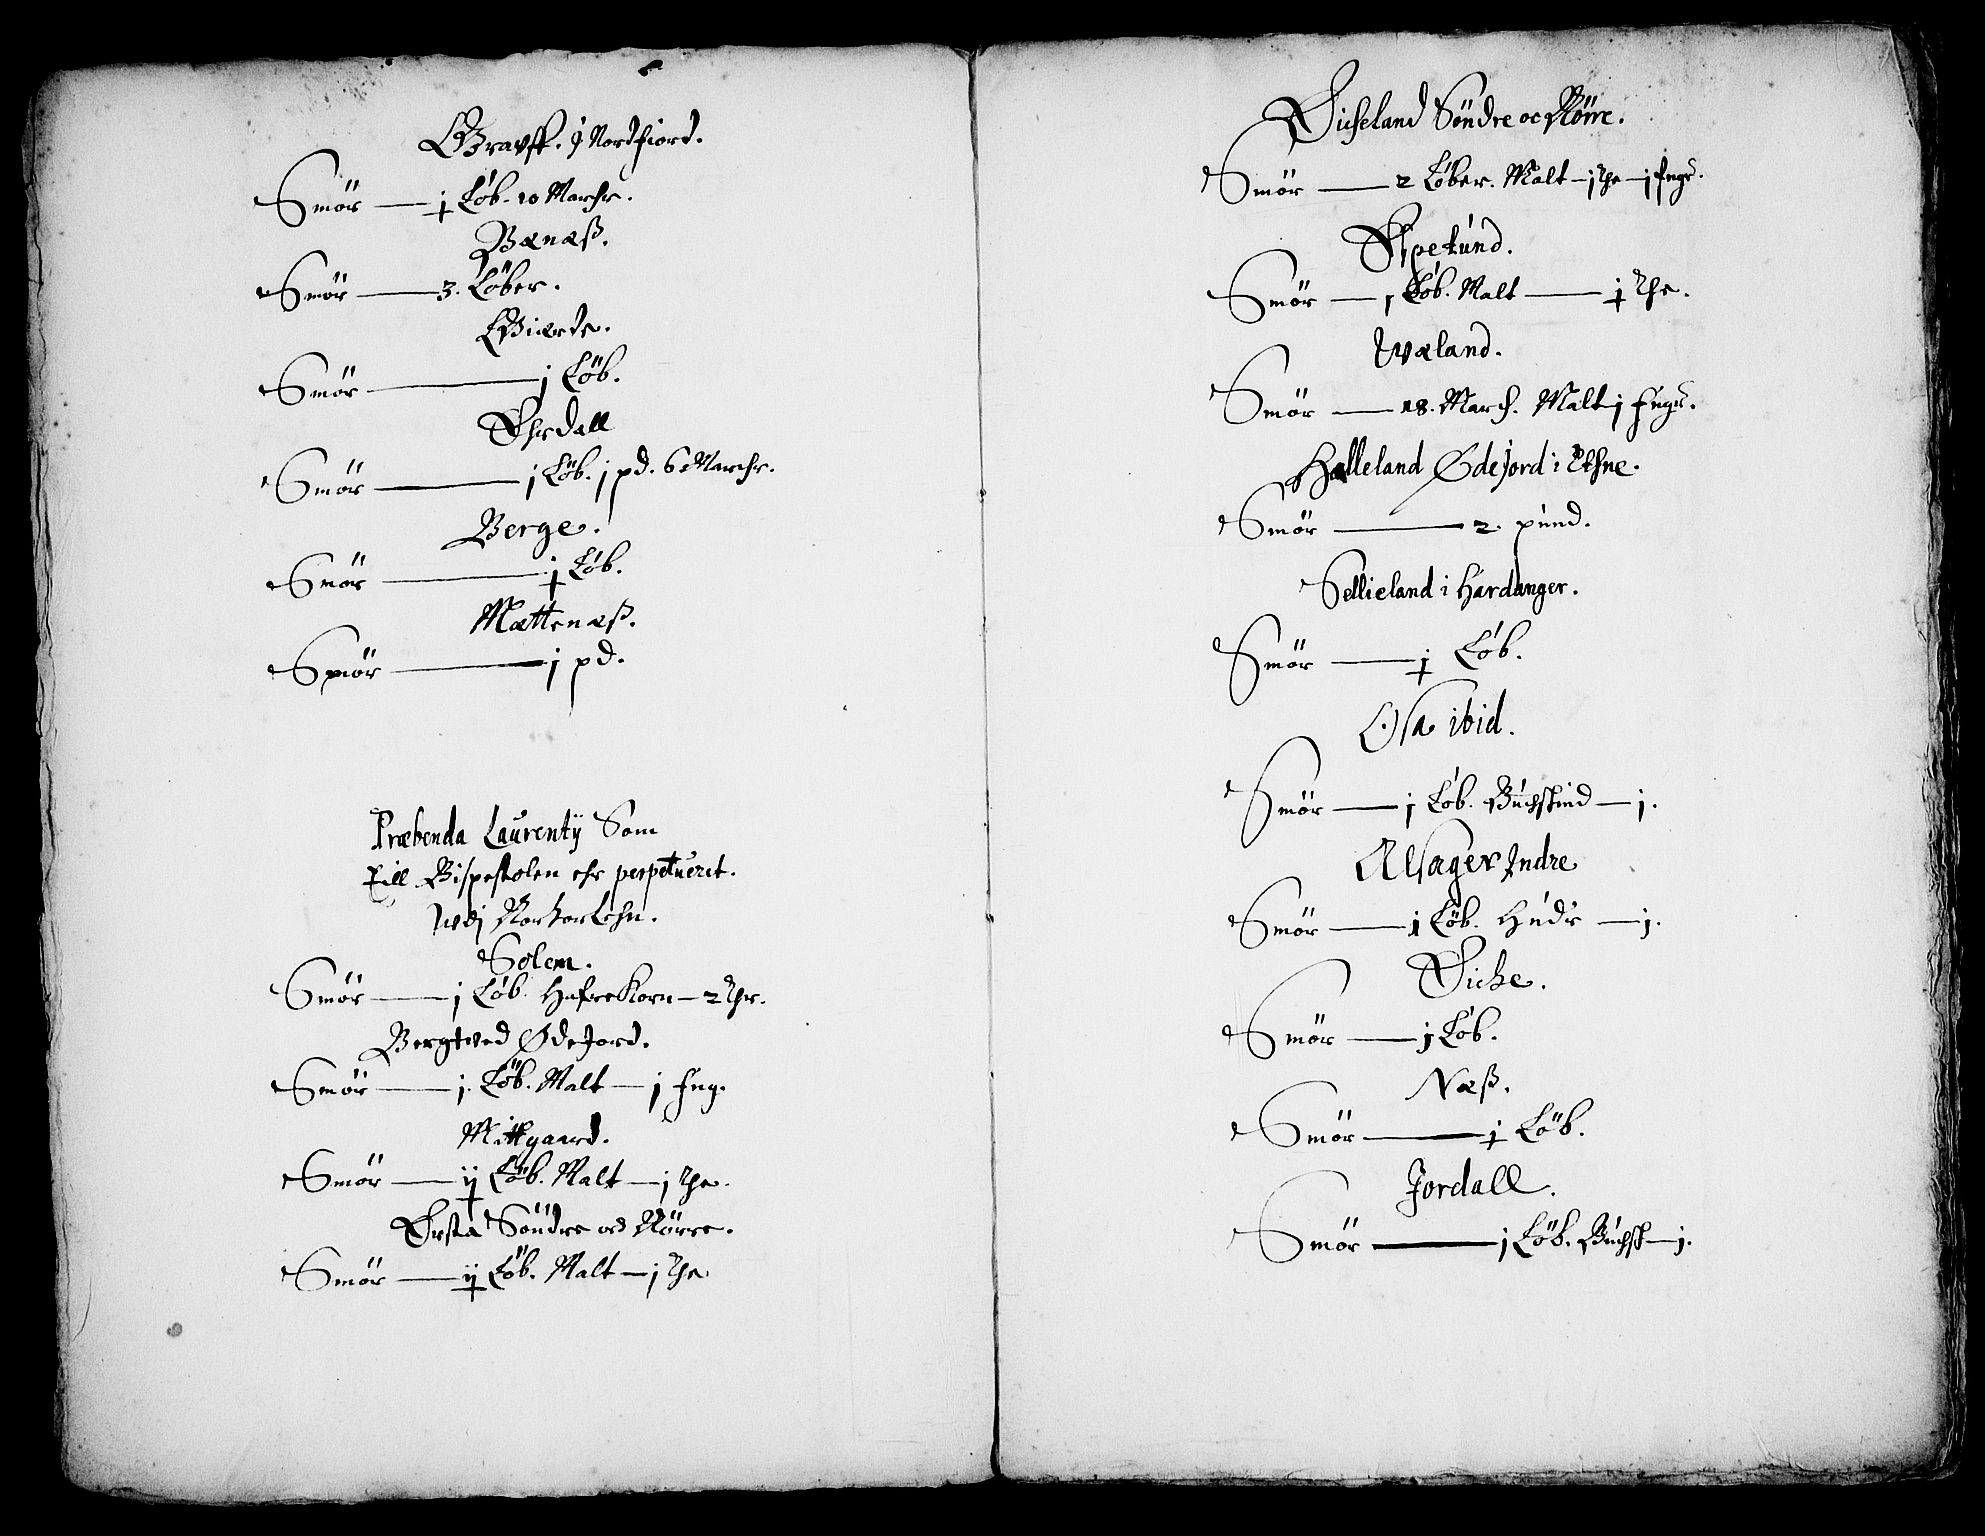 Gravff. J Nordfiord.
Smör — j Löb. 10 Marcher.
Bænæß.
Smör — 3. Löber.
Giærde.
Smör — j Löb.
Ehrdall
Smör — j Löb. j pd. 6 Marcher.
Berge.
Smör — j Löb.
Mættenæß.
Smör — j pd.
Præbenda Laurentij Som
till Bispestolen ehr perpetueret.
Udj Norhorlehn.
Solem.
Smör — j Löb. Hafrekorn — 2 Thr.
Bergtved Ødejord.
Smör — j. Löb. Malt — j Fng.
Mittgaard.
Smör — ij Löb. Malt — j The.
Ørsta Söndre och Nörre.
Smör — ij Löb. Malt — j The.
Øicheland Söndre oc Nörre.
Smör — 2 Löber. Malt — j The — j Fngr.
Smör — j Löb. Malt — j The.
Wæland.
Smör — 18. March. Malt j Fngr.
Halleland Ødejord i Ethne.
Smör — 2. pund.
Sellieland i Hardanger.
Smör — j Löb.
Osa ibid.
Smör — j Löb. Buchskind — j.
Alsager Indre
Smör — j Löb. Huder — j.
Øiche.
Smör — j Löb.
Næß.
Smör — j Löb.
Jordall.
Smör — j Löb. Buchsk — j.